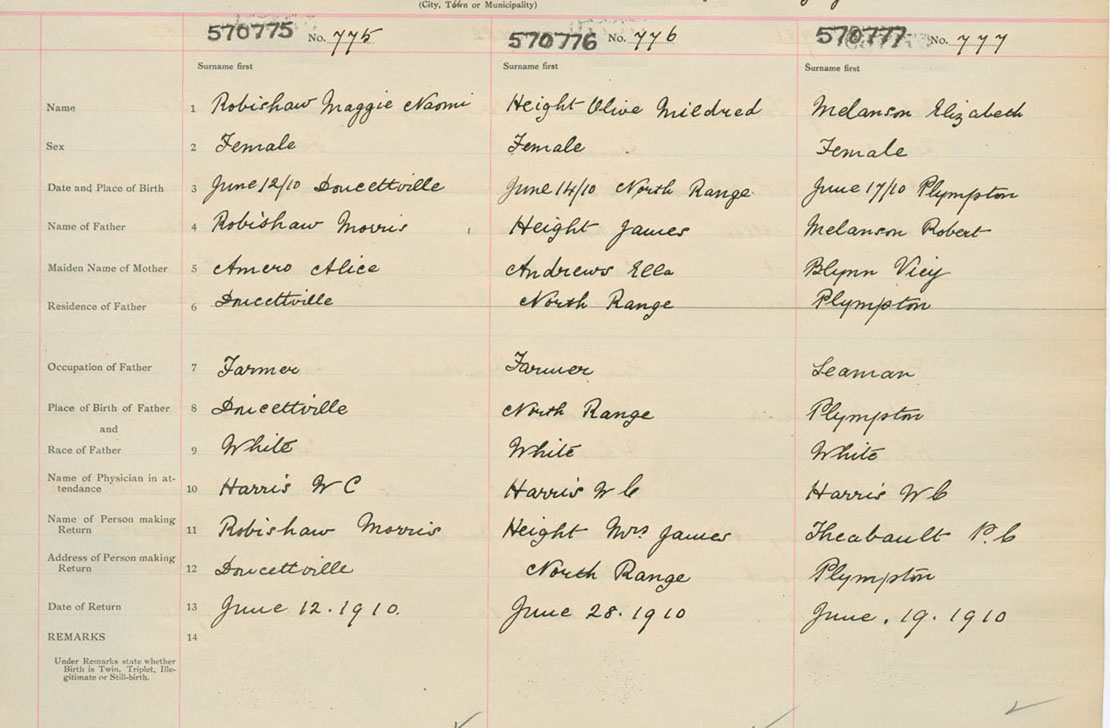 (City, Town or Municipality)
570775 No. 775 570776 No. 776 570777 No. 777
Surname first Surname first Surname first
Name 1 Robishaw Maggie Naomi Height Olive Mildred Melanson Elizabeth
Sex 2 Female Female Female
Date and Place of Birth 3 June 12/10 Doucettville June 14/10 North Range June 17/10 Plympton
Name of Father 4 Robishaw Morris Height James Melanson Robert
Maiden Name of Mother 5 Amero Alice Andrews Ella Blynn Vicy
Residence of Father 6 Doucettville North Range Plympton
Occupation of Father 7 Farmer Farmer Seaman
Place of Birth of Father 8 Doucettville North Range Plympton
and
Race of Father 9 White White White
Name of Physician in at-
tendance 10 Harris W C Harris W C Harris W C
Name of Person making
Return 11 Robishaw Morris Height Mrs James Theabault P. C
Address of Person making
Return 12 Doucettville North Range Plympton
Date of Return 13 June 12. 1910. June 28. 1910 June. 19. 1910
REMARKS 14
Under Remarks state whether
Birth is Twin, Triplet, Ille-
gitimate or Still-birth.